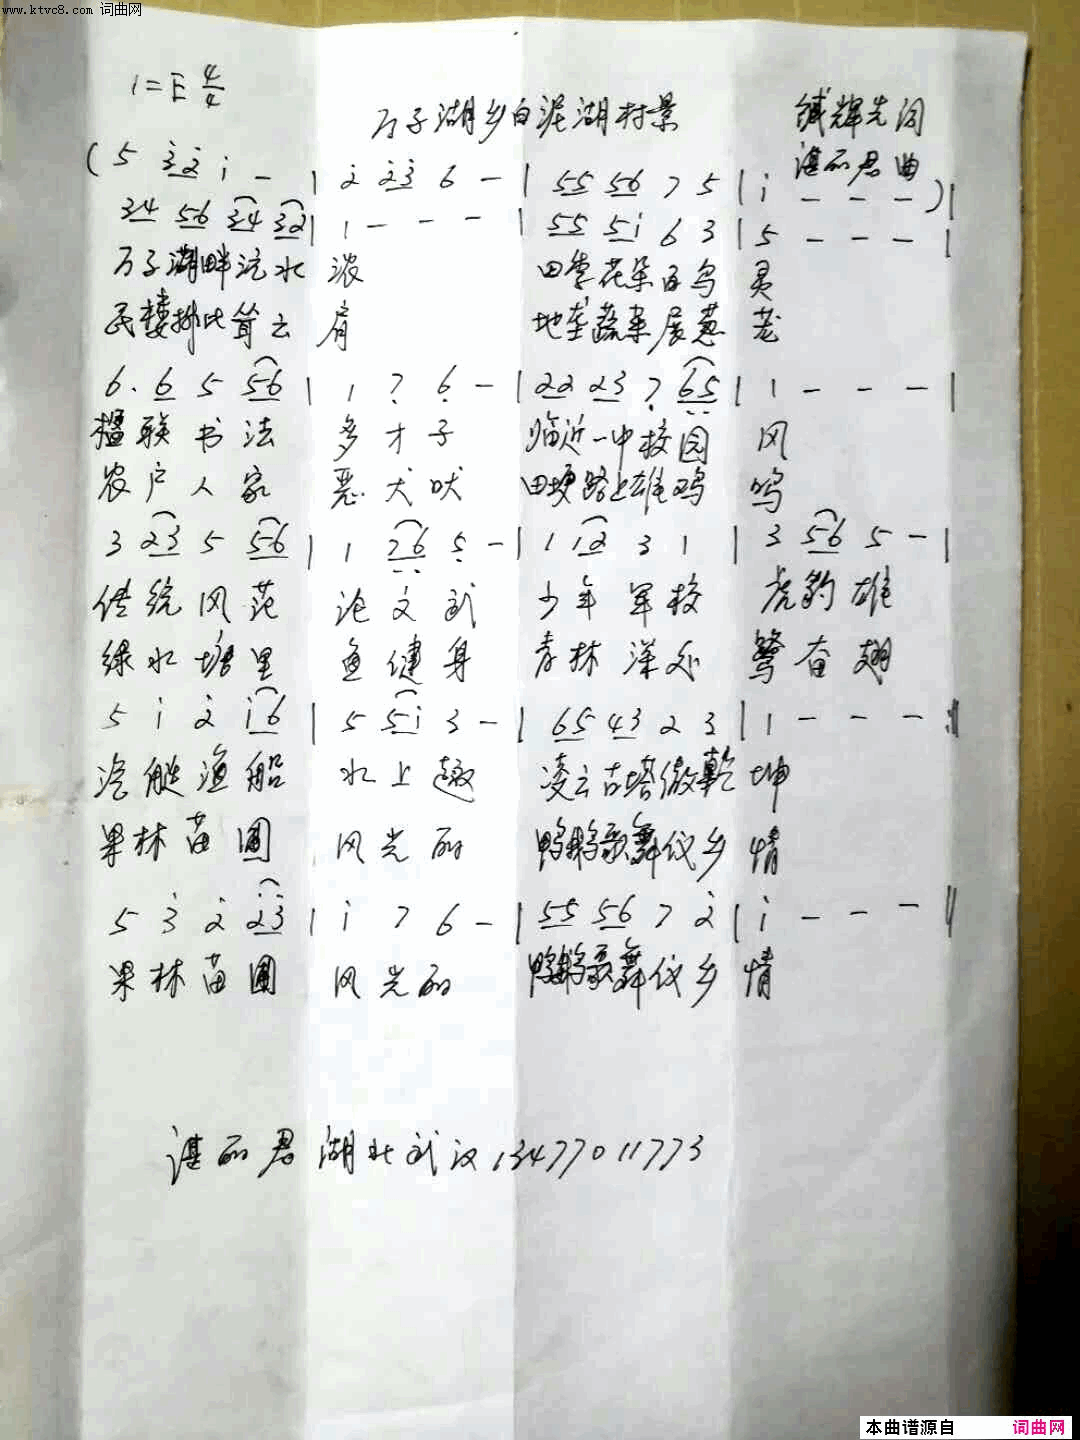 www.ktvc8.com 词曲网
1=E 4/4
万子湖乡白泥湖村景
缄辉先词
谌丽君曲
( 5 3̇2̇ 1̇ - | 2̇ 2̇3̇ 6 - | 55 56 7 5 | 1̇ - - - ) |
34 56 34 32 | 1 - - - | 55 51̇ 6 3 | 5 - - - |
万子湖畔沅水 浓 田 花朵百鸟 灵
民楼排比耸云 肩 地垄蔬菜展葱 茏
6. 6 5 56 | 1 7̣ 6̣ - | 22 23 7̣ 6̣5̣ | 1 - - - |
楹联书法 多才子 临近一中校园 风
农户人家 恶犬吠 田埂路上雄鸡 鸣
3 23 5 56 | 1 7̣6̣ 5̣ - | 1 12 3 1 | 3 56 5 - |
传统风范 论文武 少年军校 虎豹雄
绿水塘里 鱼健身 青林深处 鹭奋翅
5 1̇ 2̇ 1̇6 | 5 51̇ 3 - | 65 43 2 3 | 1 - - - :‖
汽艇渔船 水上趣 凌云古塔傲乾 坤
果林苗圃 风光丽 鸭鹅歌舞仪乡 情
5 3̇ 2̇ 2̇3̇ | 1̇ 7 6 - | 55 56 7 2̇ | 1̇ - - - ‖
果林苗圃 风光丽 鸭鹅歌舞仪乡 情
谌丽君 湖北武汉 13477011773
本曲谱源自 词曲网